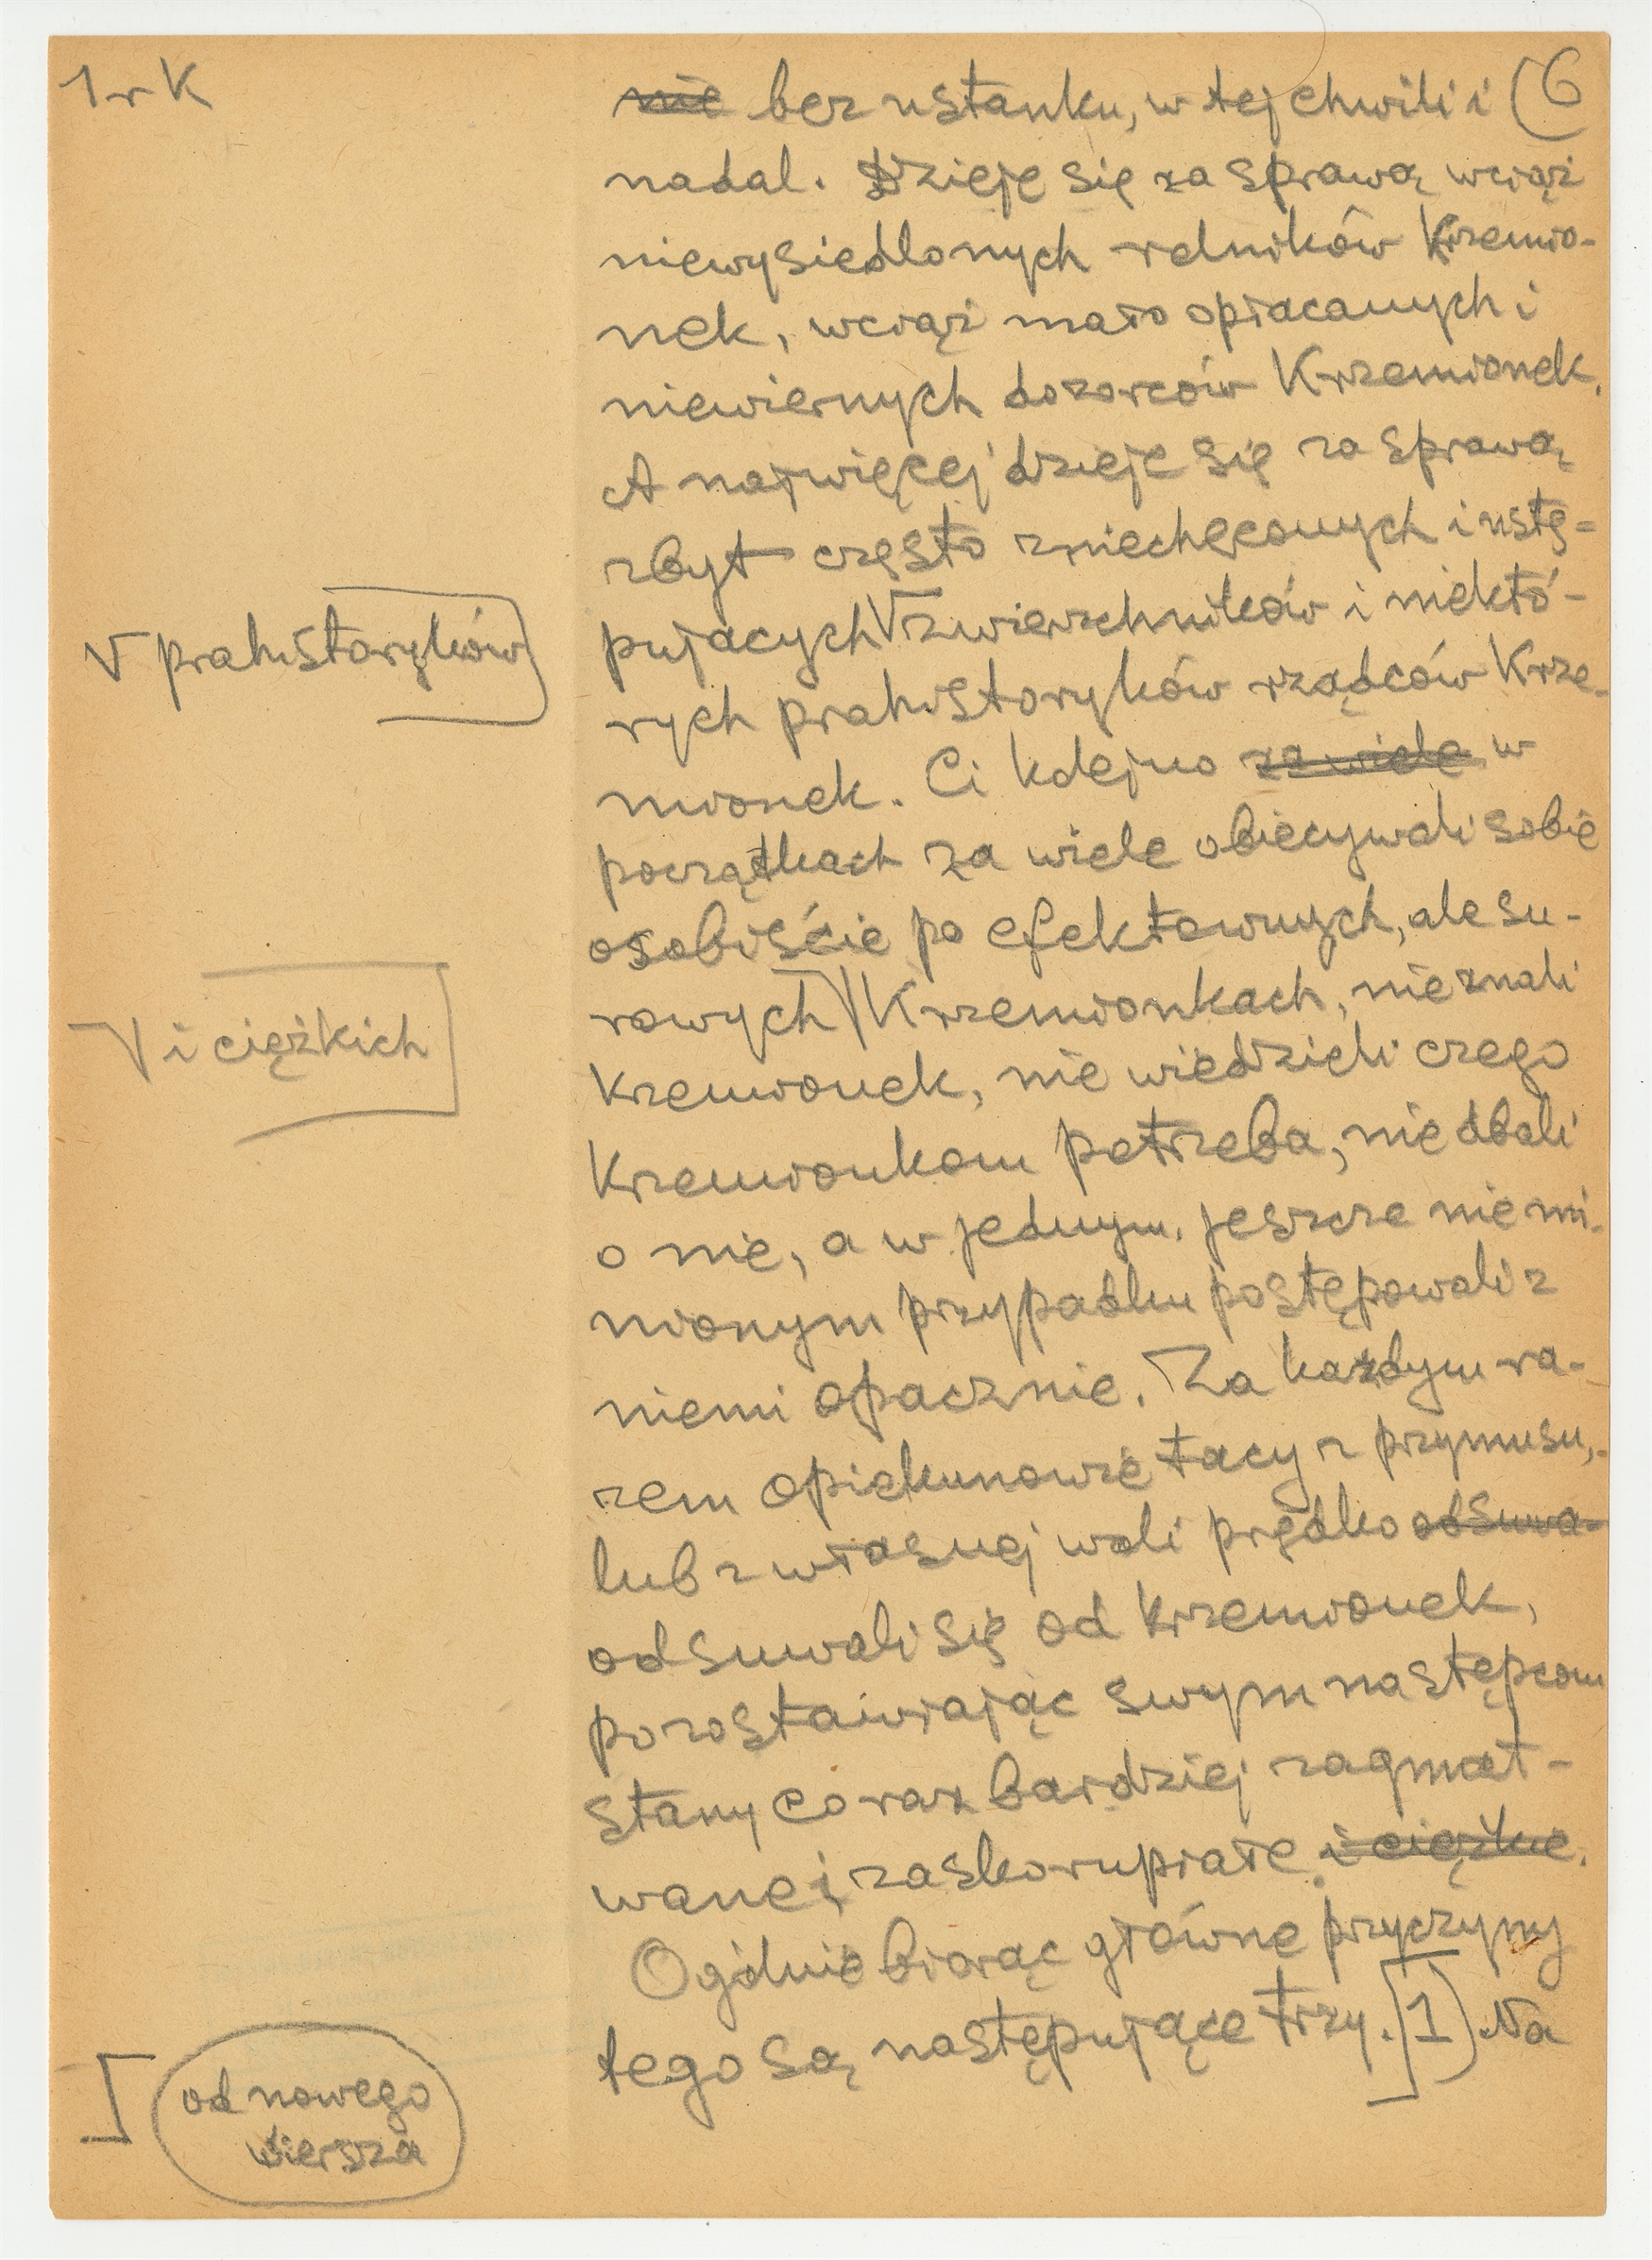 1 r K
(6
nie bez ustanku, w tej chwili i
nadal. Dzieje się za sprawą wciąż
niewysiedlonych rolników Krzemio-
nek, wciąż mało opłacanych i
niewiernych dozorców Krzemionek.
A najwięcej dzieje się za sprawą
zbyt często zniechęconych i ustę-
pujących √ zwierzchników i niektó-
√ prahistoryków
rych prahistoryków rządców Krze-
mionek. Ci kolejno za wiele w
początkach za wiele obiecywali sobie
osobiście po efektownych, ale su-
rowych √ Krzemionkach, nie znali
√ i ciężkich
Krzemionek, nie wiedzieli czego
Krzemionkom potrzeba, nie dbali
o nie, a w jednym, jeszcze nie mi-
nionym przypadku postępowali z
niemi opacznie. Za każdym ra-
zem opiekunowie tacy z przymusu,
lub z własnej woli prędko odsuwa-
odsuwali się od Krzemionek,
pozostawiając swym następcom
stany coraz bardziej zagmat-
wane i zaskorupiałe i ciężkie.
Ogólnie biorąc główne przyczyny
tego są następujące trzy. 1) Na
od nowego
wiersza